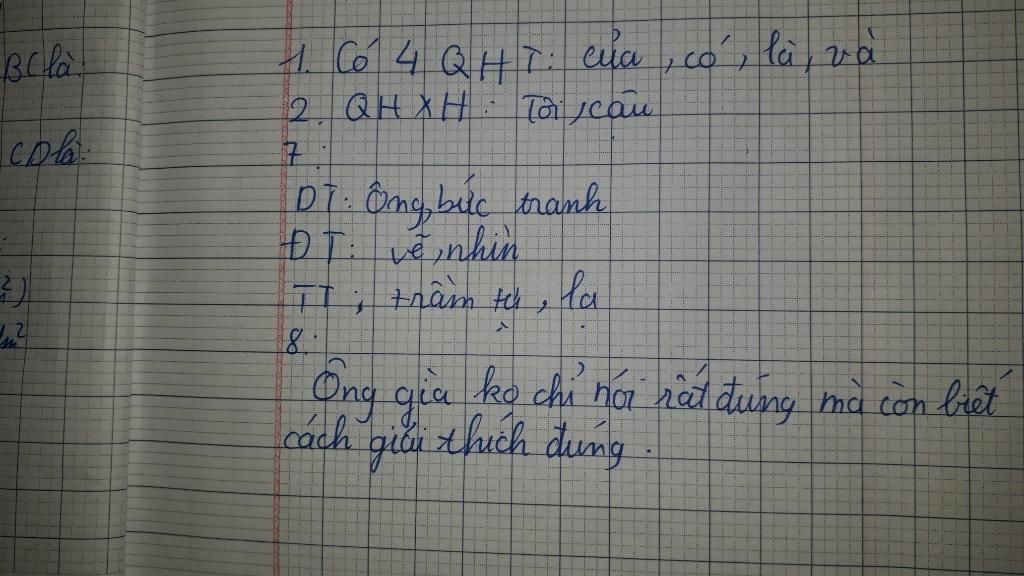 BC là:
1. Có 4 QHT: của, có, là, và
2. QHXH: Tôi, cậu
CD là:
7:
DT: Ông, bức tranh
ĐT: vẽ, nhìn
TT; trầm tư, lạ
8:
Ông già ko chỉ nói rất đúng mà còn biết
cách giải thích đúng.